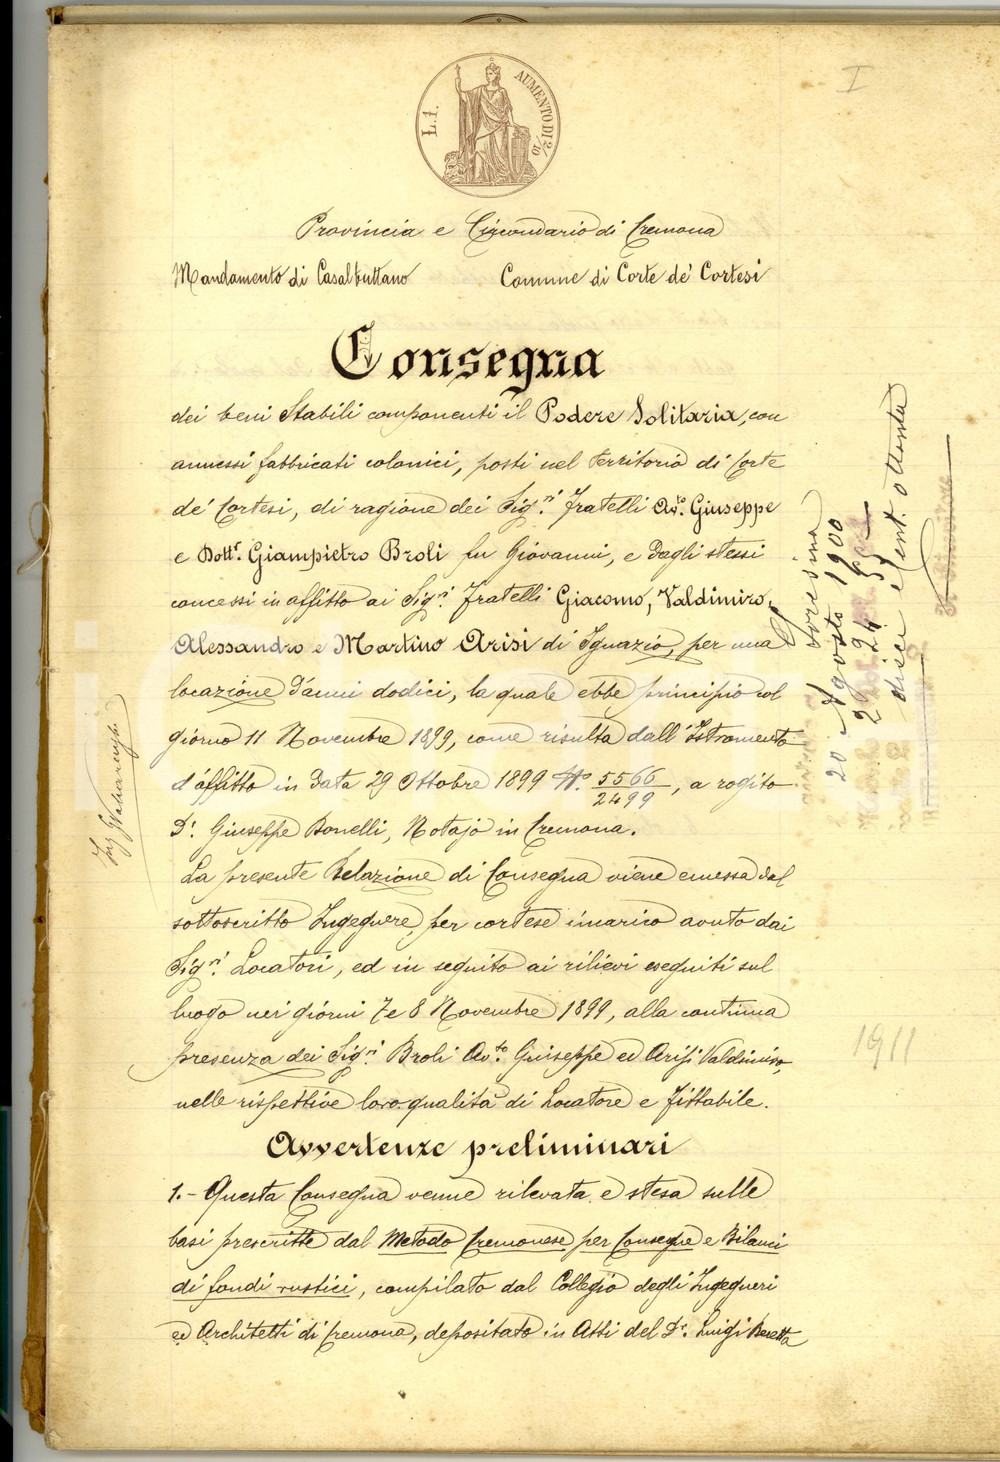 I
L. 1.
AUMENTO DI 2/10
Provincia e Circondario di Cremona
Mandamento di Casalbuttano Comune di Corte de' Cortesi
Consegna
dei beni Stabili componenti il Podere Solitaria, con
annessi fabbricati colonici, posti nel territorio di Corte
de' Cortesi, di ragione dei Sig.ri Fratelli Av.to Giuseppe
e Dott.r Giampietro Broli fu Giovanni, e dagli stessi
concessi in affitto ai Sig.ri Fratelli Giacomo, Valdimiro,
Alessandro e Martino Arisi di Ignazio, per una
locazione d'anni dodici, la quale ebbe principio col
giorno 11 Novembre 1899, come risulta dall'Istromento
d'affitto in data 29 Ottobre 1899 N.o 5566/2499, a rogito
D.r Giuseppe Bonelli, Notajo in Cremona.
La presente Relazione di Consegna viene emessa dal
sottoscritto Ingegnere, per cortese incarico avuto dai
Sig.ri Locatori, ed in seguito ai rilievi eseguiti sul
luogo nei giorni 7 e 8 Novembre 1899, alla continua
presenza dei Sig.ri Broli Av.to Giuseppe ed Arisi Valdimiro,
nelle rispettive loro qualità di Locatore e Fittabile.
Avvertenze preliminari
1.- Questa Consegna venne rilevata e stesa sulle
basi prescritte dal Metodo Cremonese per Consegne e Bilanci
di fondi rustici, compilato dal Collegio degli Ingegneri
ed Architetti di Cremona, depositato in Atti del D.r Luigi Beretta
Soresina
20 Agosto 1900
2 24
dieci e Cent. ottanta
1911